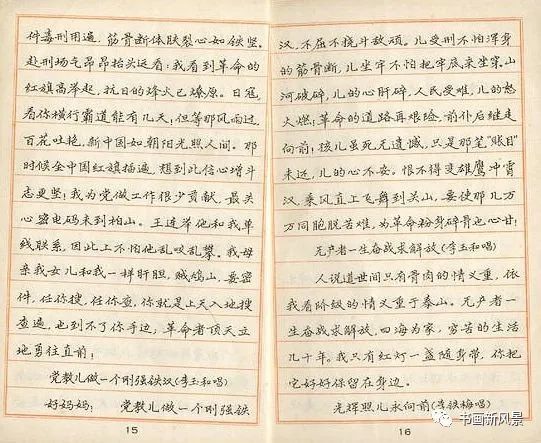 件毒刑用遍,筋骨断体肤裂心如铁坚。
赴刑场气昂昂抬头远看:我看到革命的
红旗高举起,抗日的烽火已燎原。日寇,
看你横行霸道能有几天!但等那风雨过,
百花吐艳,新中国如朝阳光照人间。那
时候全中国红旗插遍,想到此信心增斗
志更坚!我为党做工作很少贡献,最关
心密电码未到柏山。王连举他和我单
线联系,因此上不怕他乱咬乱攀。我母
亲我女儿和我一样肝胆,贼鸠山,要密
件,任你搜,任你查,你就是上天入地搜
查遍,也到不了你手边,革命者顶天立
地勇往直前!
党教儿做一个刚强铁汉(李玉和唱)
好妈妈: 党教儿做一个刚强铁
15
汉,不屈不挠斗敌顽。儿受刑不怕浑身
的筋骨断,儿坐牢不怕把牢底来坐穿。山
河破碎,儿的心肝碎,人民受难,儿的怒
火燃!革命的道路再艰险,前仆后继走
向前!孩儿虽死无遗憾,只是那笔“账目”
未还,儿的心不安。恨不得变雄鹰冲霄
汉,乘风直上飞舞到关山,要使那几万
万同胞脱苦难,为革命粉身碎骨也心甘!
无产者一生奋战求解放(李玉和唱)
人说道世间只有骨肉的情义重,依
我看阶级的情义重于泰山。无产者一
生奋战求解放,四海为家,穷苦的生活
几十年。我只有红灯一盏随身带,你把
它好好保留在身边。
光辉照儿永向前(李铁梅唱)
16
书画新风景